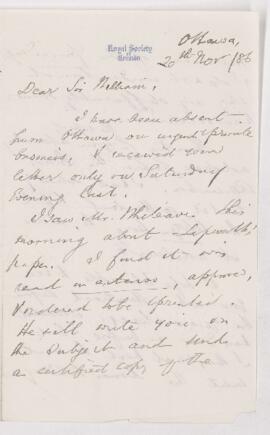 Royal Society
of
Canada
Ottawa,
20th Nov /86
Dear Sir William,
I have been absent
from Ottawa on urgent private
business. I received your
letter only on Saturday
Evening last.
I saw Mr. Whiteave. this
morning about
paper. I find it was
read in extenso, approved,
& ordered to be printed.
He will write you on
the subject and send
a certified copy of the